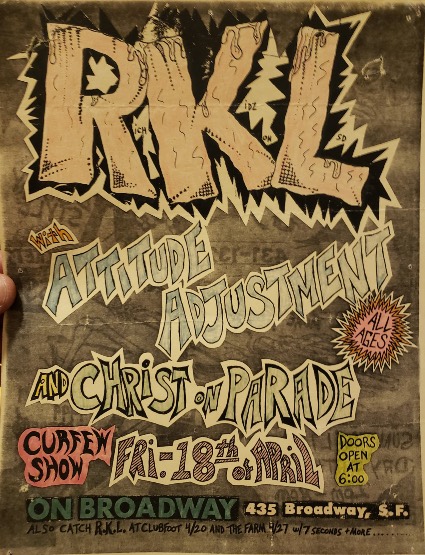 RKL
ICH IDZ ON SD
with
ATTITUDE
ADJUSTMENT
ALL
AGES
AND CHRIST ON PARADE
CURFEW
SHOW
FRI-18th of APRIL
DOORS
OPEN
AT
6:00
ON BROADWAY 435 Broadway, S.F.
ALSO CATCH R.K.L. AT CLUBFOOT 4/20 AND THE FARM 4/27 w/ 7 SECONDS + MORE......